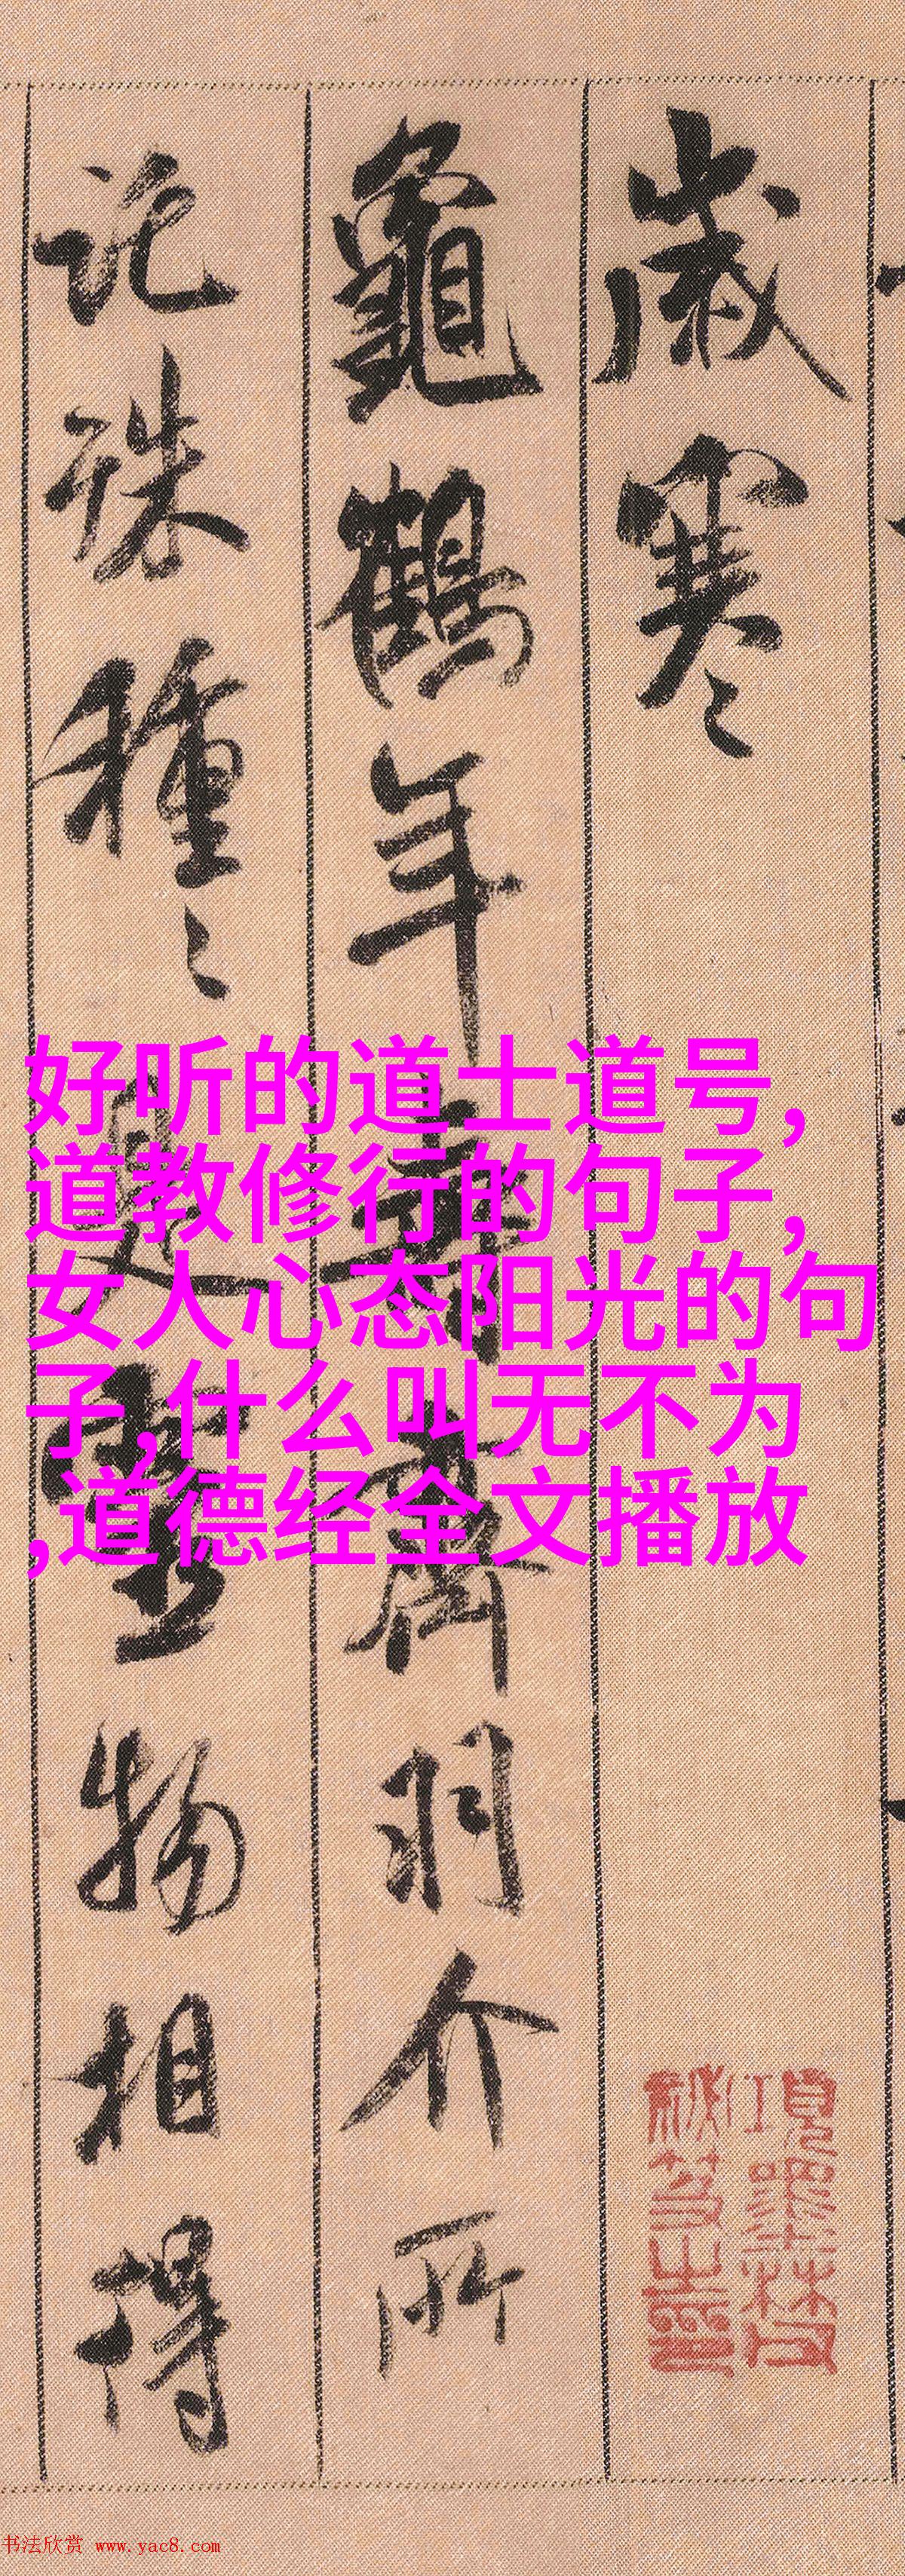 歲寒
龜鶴年壽齊羽介所
託殊種〻是靈物相得
項墨林父
秘笈之印
好听的道士道号,
道教修行的句子,
女人心态阳光的句
子,什么叫无不为
,道德经全文播放
书法欣赏 www.yac8.com